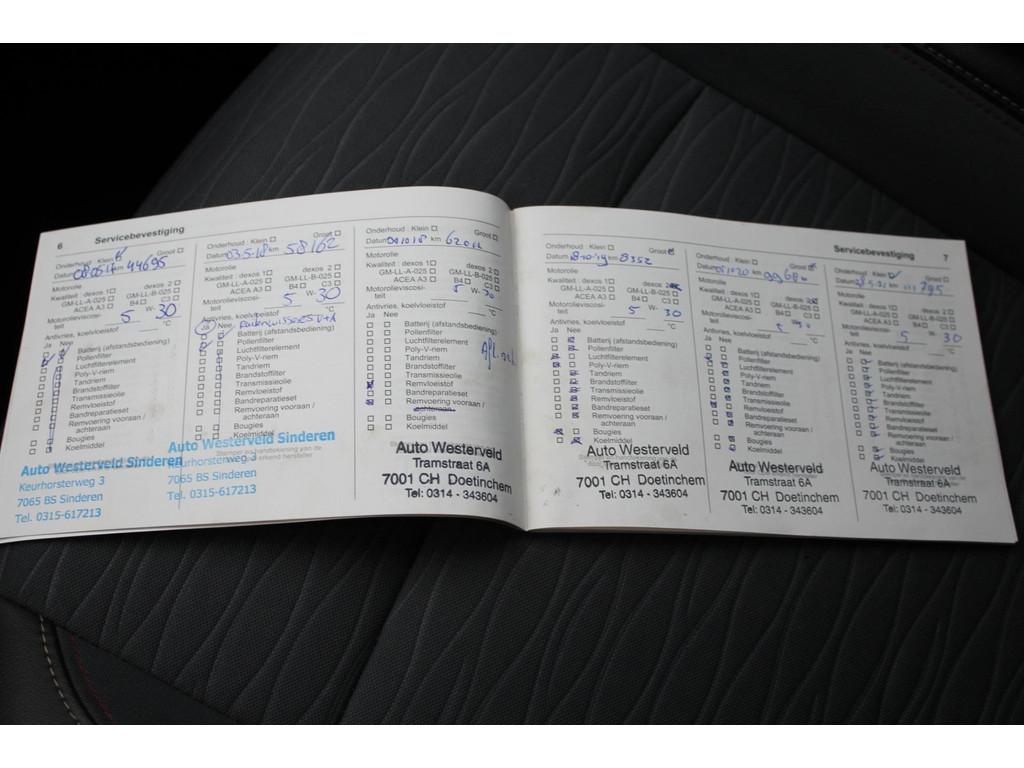 6 Servicebevestiging
Onderhoud : Klein Groot
Datum 08.06.17 km 44695
Motorolie
Kwaliteit : dexos 1 dexos 2
GM-LL-A-025 GM-LL-B-025
ACEA A3 B4 C3
Motorolieviscosi- 5 W- 30
teit
Antivries, koelvloeistof °C
Ja Nee
Batterij (afstandsbediening)
Pollenfilter
Luchtfilterelement
Poly-V-riem
Tandriem
Brandstoffilter
Transmissieolie
Remvloeistof
Bandreparatieset
Remvoering vooraan /
achteraan
Bougies
Koelmiddel
Auto Westerveld Sinderen
Keurhorsterweg 3
7065 BS Sinderen
Tel. 0315-617213
Onderhoud : Klein Groot
Datum 03.5.18 km 58162
Motorolie
Kwaliteit : dexos 1 dexos 2
GM-LL-A-025 GM-LL-B-025
ACEA A3 B4 C3
Motorolieviscosi- 5 W- 30
teit
Antivries, koelvloeistof °C
Ja Nee Ruitenwissers V+A
Batterij (afstandsbediening)
Pollenfilter
Luchtfilterelement
Poly-V-riem
Tandriem
Brandstoffilter
Transmissieolie
Remvloeistof
Bandreparatieset
Remvoering vooraan /
achteraan
Bougies
Koelmiddel
Auto Westerveld Sinderen
Keurhorsterweg 3
7065 BS Sinderen
Tel. 0315-617213
Onderhoud : Klein Groot
Datum km
Motorolie
Kwaliteit : dexos 1 dexos 2
GM-LL-A-025 GM-LL-B-025
ACEA A3 B4 C3
Motorolieviscosi- 5 W- 30
teit
Antivries, koelvloeistof °C
Ja Nee
Batterij (afstandsbediening)
Pollenfilter
Luchtfilterelement
Poly-V-riem
Tandriem
Brandstoffilter
Transmissieolie
Remvloeistof
Bandreparatieset
Remvoering vooraan /
achteraan
Bougies
Koelmiddel
Auto Westerveld
Tramstraat 6A
7001 CH Doetinchem
Tel: 0314 - 343604
Servicebevestiging 7
Onderhoud : Klein Groot
Datum 8-10-19 km 8352
Motorolie
Kwaliteit : dexos 1 dexos 2
GM-LL-A-025 GM-LL-B-025
ACEA A3 B4 C3
Motorolieviscosi- 5 W- 30
teit
Antivries, koelvloeistof °C
Ja Nee
Batterij (afstandsbediening)
Pollenfilter
Luchtfilterelement
Poly-V-riem
Tandriem
Brandstoffilter
Transmissieolie
Remvloeistof
Bandreparatieset
Remvoering vooraan /
achteraan
Bougies
Koelmiddel
Auto Westerveld
Tramstraat 6A
7001 CH Doetinchem
Tel: 0314 - 343604
Onderhoud : Klein Groot
Datum km
Motorolie
Kwaliteit : dexos 1 dexos 2
GM-LL-A-025 GM-LL-B-025
ACEA A3 B4 C3
Motorolieviscosi- W-
teit
Antivries, koelvloeistof °C
Ja Nee
Batterij (afstandsbediening)
Pollenfilter
Luchtfilterelement
Poly-V-riem
Tandriem
Brandstoffilter
Transmissieolie
Remvloeistof
Bandreparatieset
Remvoering vooraan /
achteraan
Bougies
Koelmiddel
Auto Westerveld
Tramstraat 6A
7001 CH Doetinchem
Tel: 0314 - 343604
Onderhoud : Klein Groot
Datum km 111295
Motorolie
Kwaliteit : dexos 1 dexos 2
GM-LL-A-025 GM-LL-B-025
ACEA A3 B4 C3
Motorolieviscosi- 5 W- 30
teit
Antivries, koelvloeistof °C
Ja Nee
Batterij (afstandsbediening)
Pollenfilter
Luchtfilterelement
Poly-V-riem
Tandriem
Brandstoffilter
Transmissieolie
Remvloeistof
Bandreparatieset
Remvoering vooraan /
achteraan
Bougies
Koelmiddel
Auto Westerveld
Tramstraat 6A
7001 CH Doetinchem
Tel: 0314 - 343604